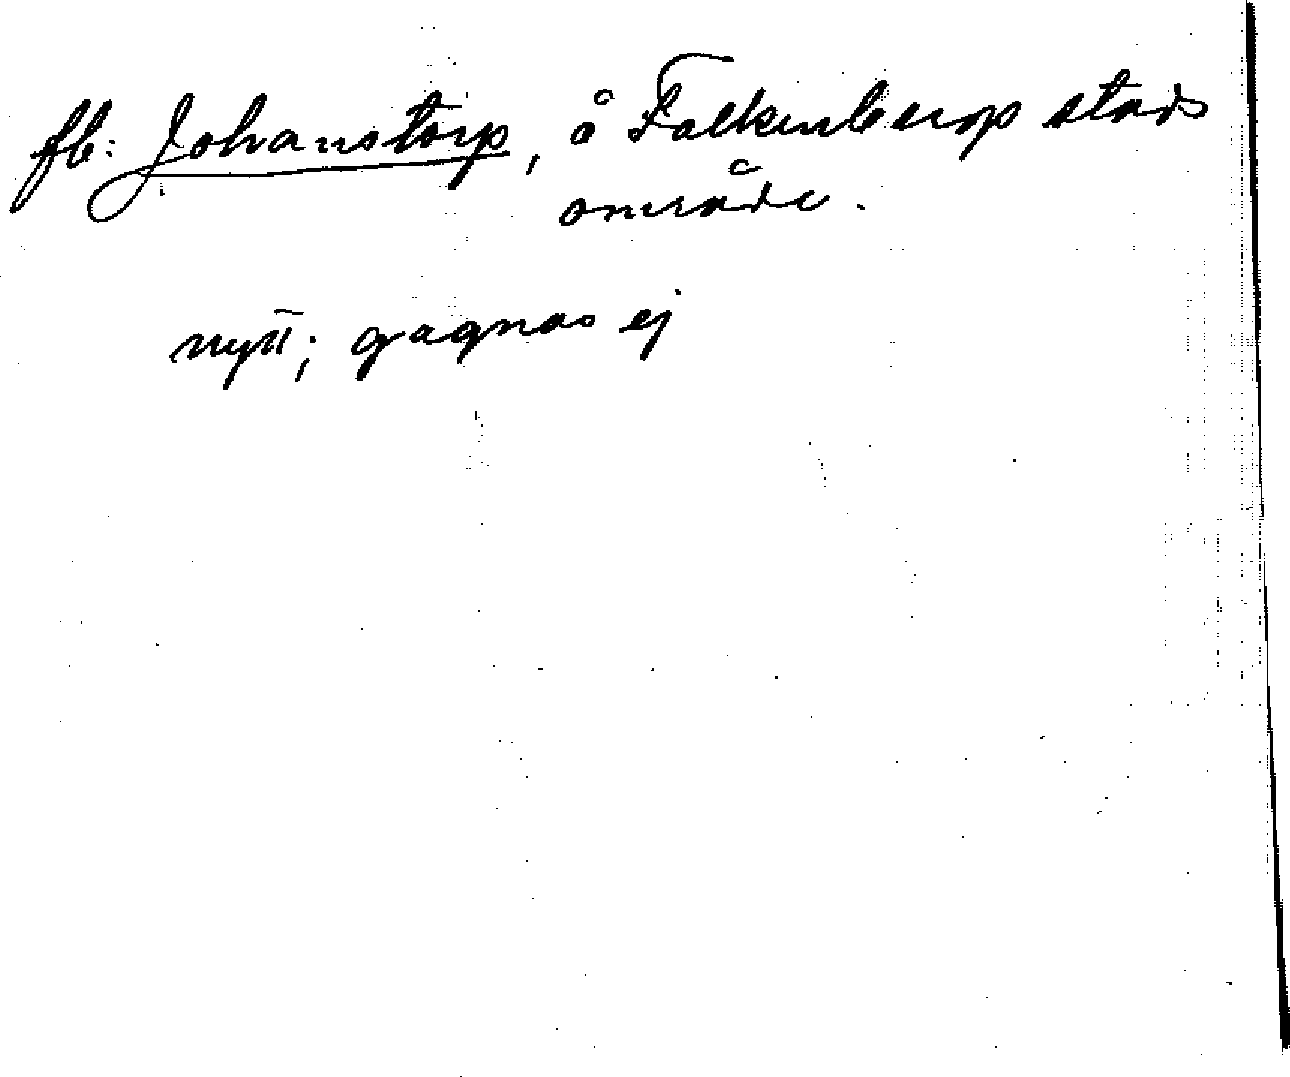 fb: Johanstorp, å Falkenbergs stads
område.
nytt; gagnas ej